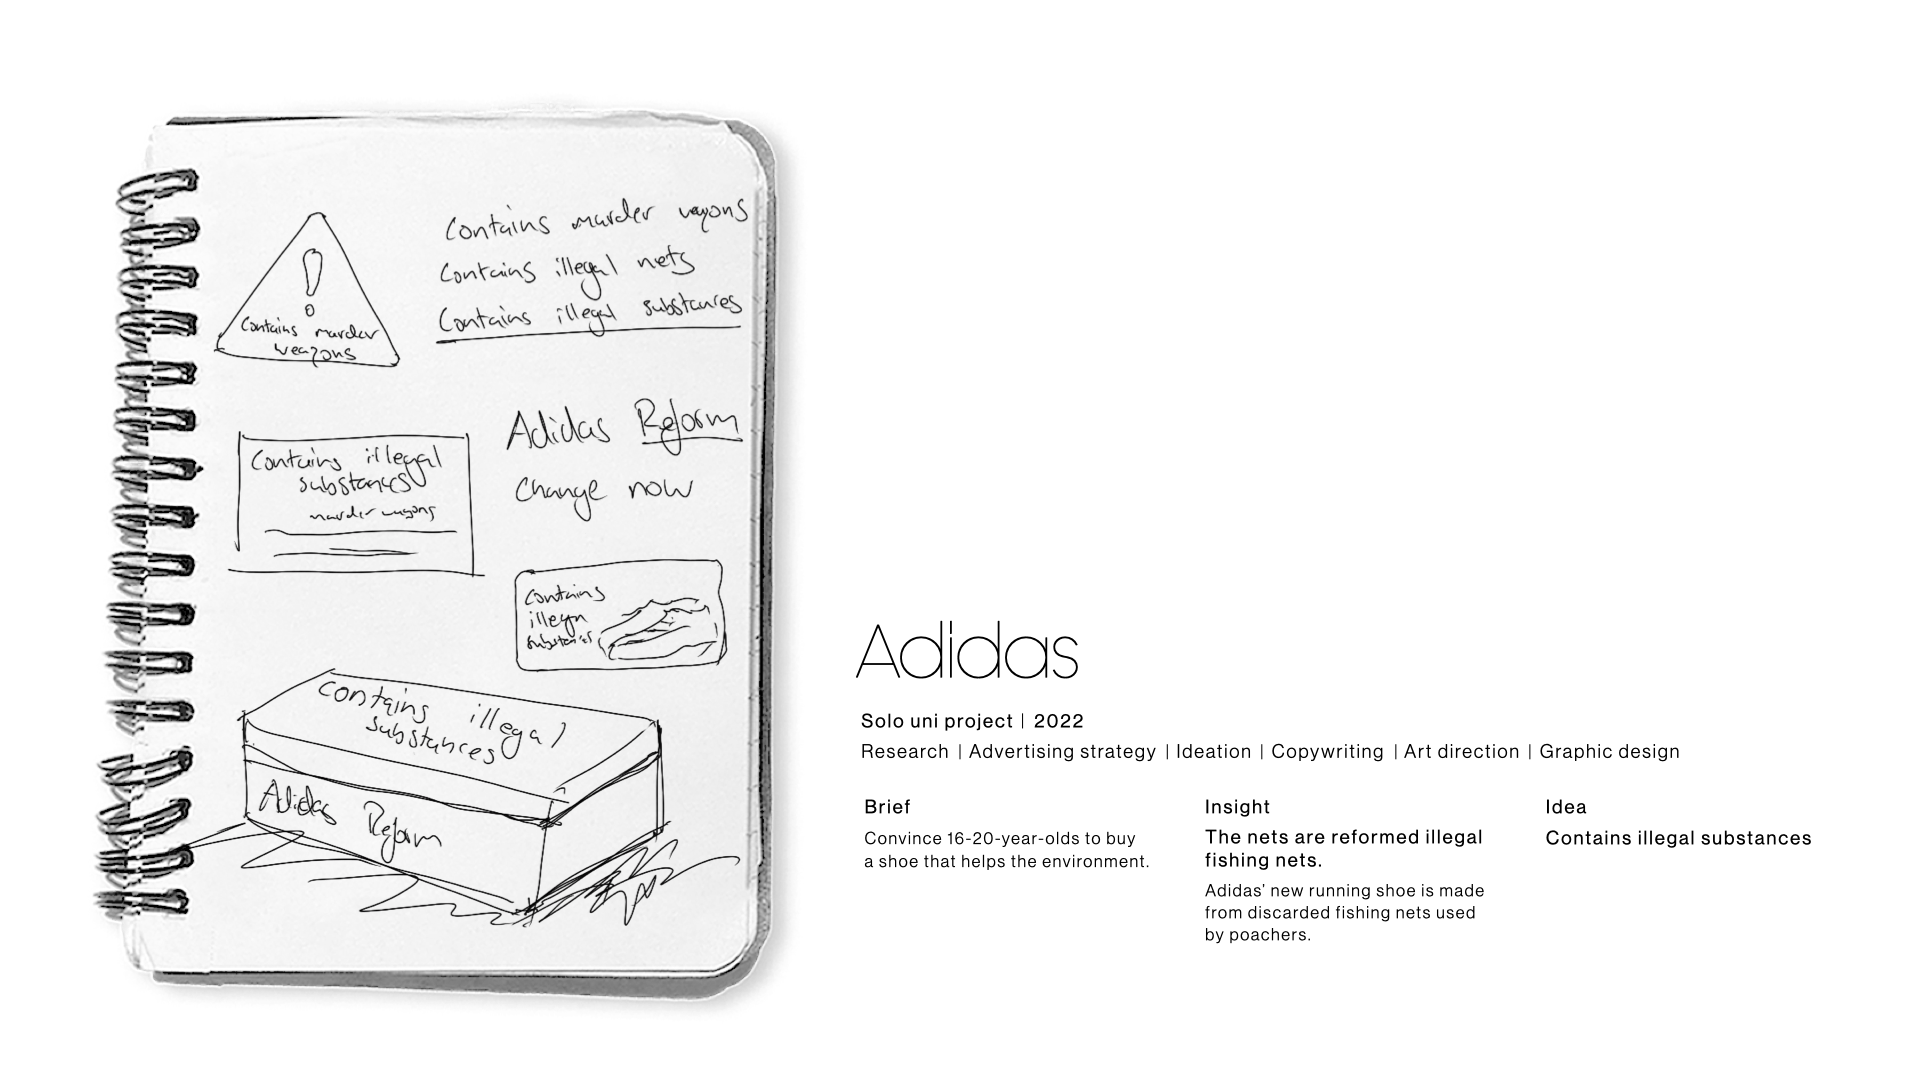 Contains murder weapons
Contains illegal nets
Contains illegal substances
!
Contains murder
weapons
Adidas Reform
Change now
Contains illegal
substances
murder weapons
Contains
illegal
substances
Contains illegal
substances
Adidas Reform
Adidas
Solo uni project | 2022
Research | Advertising strategy | Ideation | Copywriting | Art direction | Graphic design
Brief
Convince 16-20-year-olds to buy
a shoe that helps the environment.
Insight
The nets are reformed illegal
fishing nets.
Adidas' new running shoe is made
from discarded fishing nets used
by poachers.
Idea
Contains illegal substances